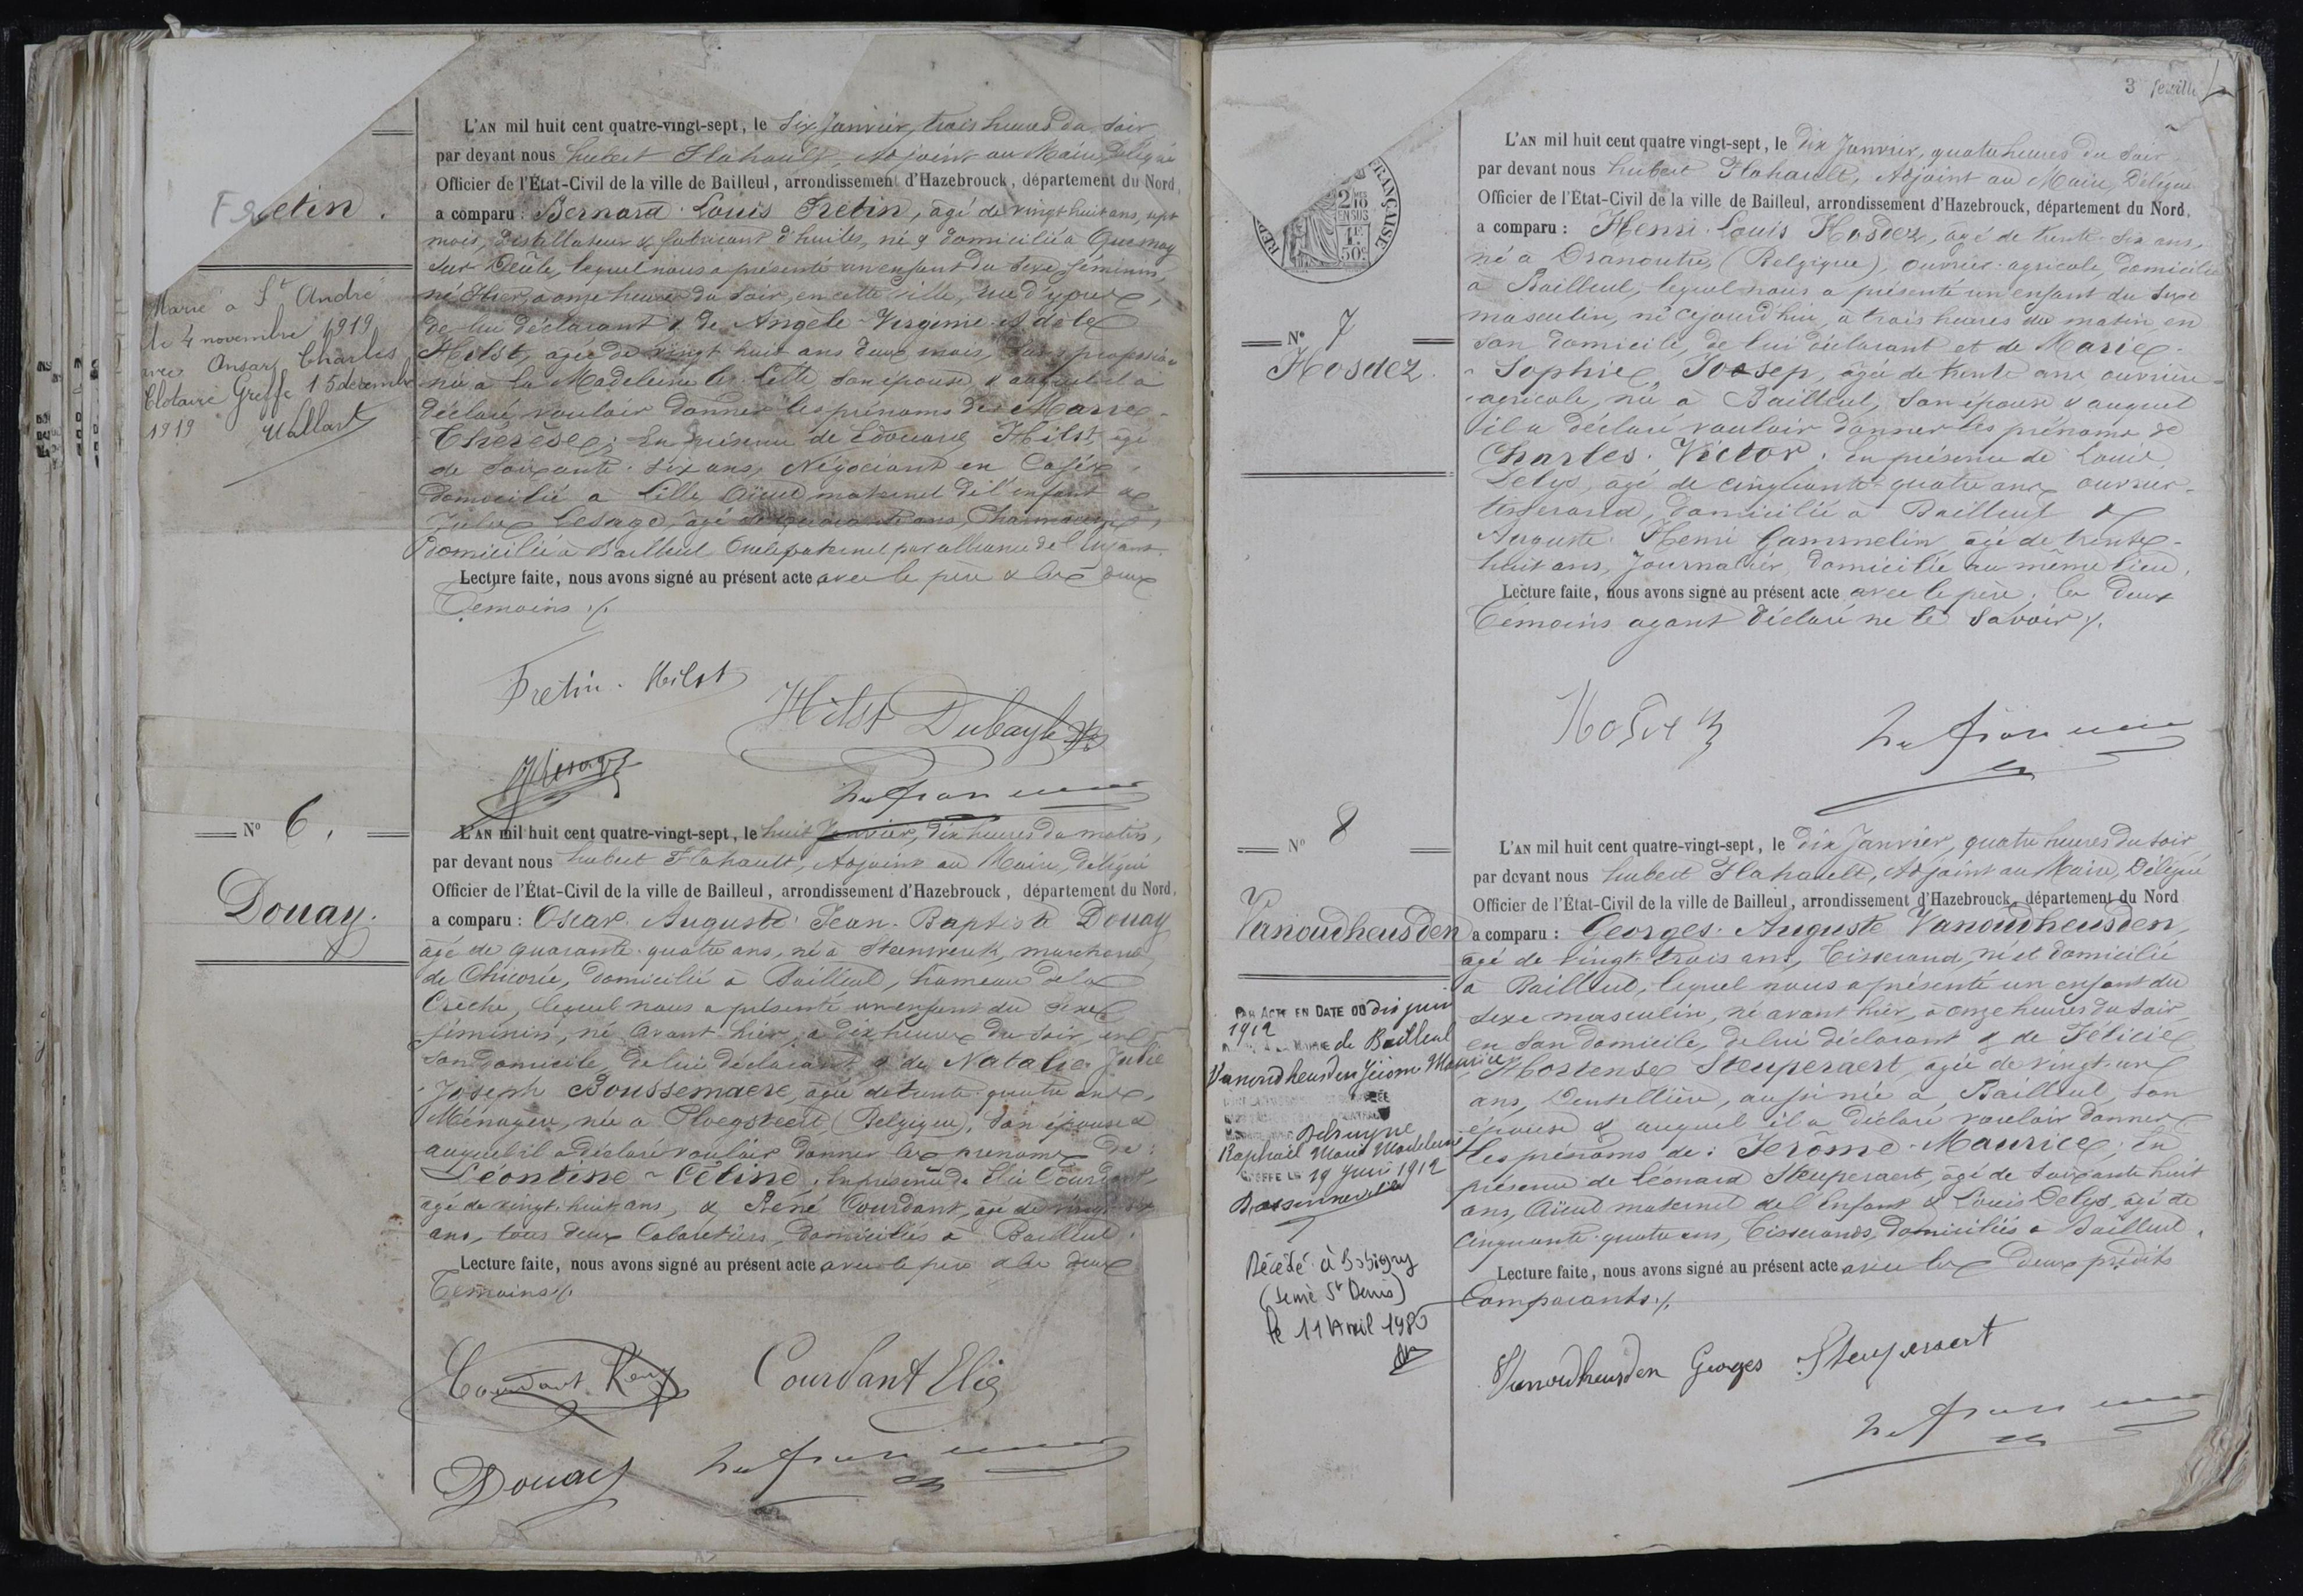 Fretin.
Marié à St André
le 4 novembre 1919
avec Onsary Charles
Clotaire Greffe 15 decembre
1919 Wallart
L'AN mil huit cent quatre-vingt-sept, le Six Janvier, trois heures du soir
par devant nous hubert Flahault, Adjoint au Maire, Délégué
Officier de l'État-Civil de la ville de Bailleul, arrondissement d'Hazebrouck, département du Nord,
a comparu : Bernard Louis Fretin, âgé de vingt huit ans, sept
mois, distillateur & fabricant d'huiles, né & domicilié à Quesnoy
sur Deûle, lequel nous a présenté un enfant du sexe féminin,
né Hier, à onze heures du soir, en cette ville, rue d'ypres,
de lui déclarant & de Angèle-Virginie Adèle
Hilst, âgée de vingt huit ans deux mois, sans profession
née à la Madeleine lez Lille, son épouse & auquel il a
déclaré vouloir donner les prénoms de Marie-
Thérèse; En présence de Edouard Hilst, âgé
de Soixante-six ans, Négociant en Cafés,
domicilié à Lille, Aïeul maternel de l'enfant &
Jules Lesage, âgé de quarante ans, Pharmacien,
domicilié à Bailleul Oncle paternel par alliance de l'Enfant.
Lecture faite, nous avons signé au présent acte avec le père & les deux
Témoins ./.
Fretin-Hilst
Hilst Dubayle
JLesage
N° 6.
Douay.
L'AN mil huit cent quatre-vingt-sept, le huit Janvier, dix heures du matin,
par devant nous hubert Flahault, Adjoint au Maire, délégué
Officier de l'État-Civil de la ville de Bailleul, arrondissement d'Hazebrouck, département du Nord,
a comparu : Oscar Auguste Jean-Baptiste Douay
âgé de quarante-quatre ans, né à Steenwerck, marchand
de Chicorée, domicilié à Bailleul, hameau de la
Crèche, lequel nous a présenté un enfant du sexe
féminin, né Avant-hier, à dix heures du soir, en
son domicile, de lui déclarant & de Natalie Julie
Joseph Boussemaere, âgée de trente-quatre ans,
Ménagère, née à Ploegsteert, (Belgique), son épouse &
auquel il a déclaré vouloir donner les prénoms de :
Léontine-Céline, En présence de Elie Courdant,
âgé de vingt-huit ans, & René Courdant, âgé de vingt
ans, tous deux Cabaretiers, domiciliés à Bailleul.
Lecture faite, nous avons signé au présent acte avec le père & les deux
Témoins ./.
Courdant René
Courdant Elie
Douay
3 feuille
RÉP FRANÇAISE
2/10 EN SUS
1F 50c
N° 7
Hosdez.
L'AN mil huit cent quatre vingt-sept, le dix Janvier, quatre heures du soir
par devant nous hubert Flahault, Adjoint au Maire, Délégué
Officier de l'État-Civil de la ville de Bailleul, arrondissement d'Hazebrouck, département du Nord,
a comparu : Henri-Louis Hosdez, âgé de trente-six ans,
né à Dranoutre, (Belgique), ouvrier-agricole, domicilié
à Bailleul, lequel nous a présenté un enfant du sexe
masculin, né cejourd'hui, à trois heures du matin en
son domicile, de lui déclarant et de Marie-
Sophie Joosep, âgée de trente ans ouvrière-
agricole, née à Bailleul, son épouse & auquel
il a déclaré vouloir donner les prénoms de
Charles-Victor; en présence de Louis
Delys, âgé de cinquante-quatre ans, ouvrier-
tisserand, domicilié à Bailleul &
Auguste-Henri Gammelin âgé de trente-
huit ans, Journalier, domicilié au même lieu.
Lecture faite, nous avons signé au présent acte avec le père; les deux
Témoins ayant déclaré ne le Savoir ./.
Hosdez
N° 8
Vanoudheusden
PAR ACTE EN DATE DU dix juin
1912
MAIRIE de Bailleul
Vanoudheusden Jérôme Maurice
Delruyne
Raphaël Marie Madeleine
GREFFE LE 19 Juin 1912
Décédé à Bobigny
(Seine St Denis)
le 11 Avril 1980
L'AN mil huit cent quatre-vingt-sept, le dix Janvier, quatre heures du soir
par devant nous hubert Flahault, Adjoint au Maire, Délégué
Officier de l'État-Civil de la ville de Bailleul, arrondissement d'Hazebrouck, département du Nord
a comparu : Georges-Auguste Vanoudheusden,
âgé de vingt-trois ans, Tisserand, né et domicilié
à Bailleul, lequel nous a présenté un enfant du
sexe masculin, né avant hier, à onze heures du soir,
en son domicile, de lui déclarant & de Félicie
Hortense Steuperaert, âgée de vingt-un
ans, Dentellière, aussi née à Bailleul, son
épouse & auquel il a déclaré vouloir donner
les prénoms de : Jérôme-Maurice; En
présence de Léonard Steuperaert, âgé de soixante huit
ans, Aïeul maternel de l'Enfant & Louis Delys, âgé de
cinquante-quatre ans, Tisserands, domiciliés à Bailleul.
Lecture faite, nous avons signé au présent acte avec les deux prédits
Comparants ./.
Vanoudheusden Georges Steuperaert